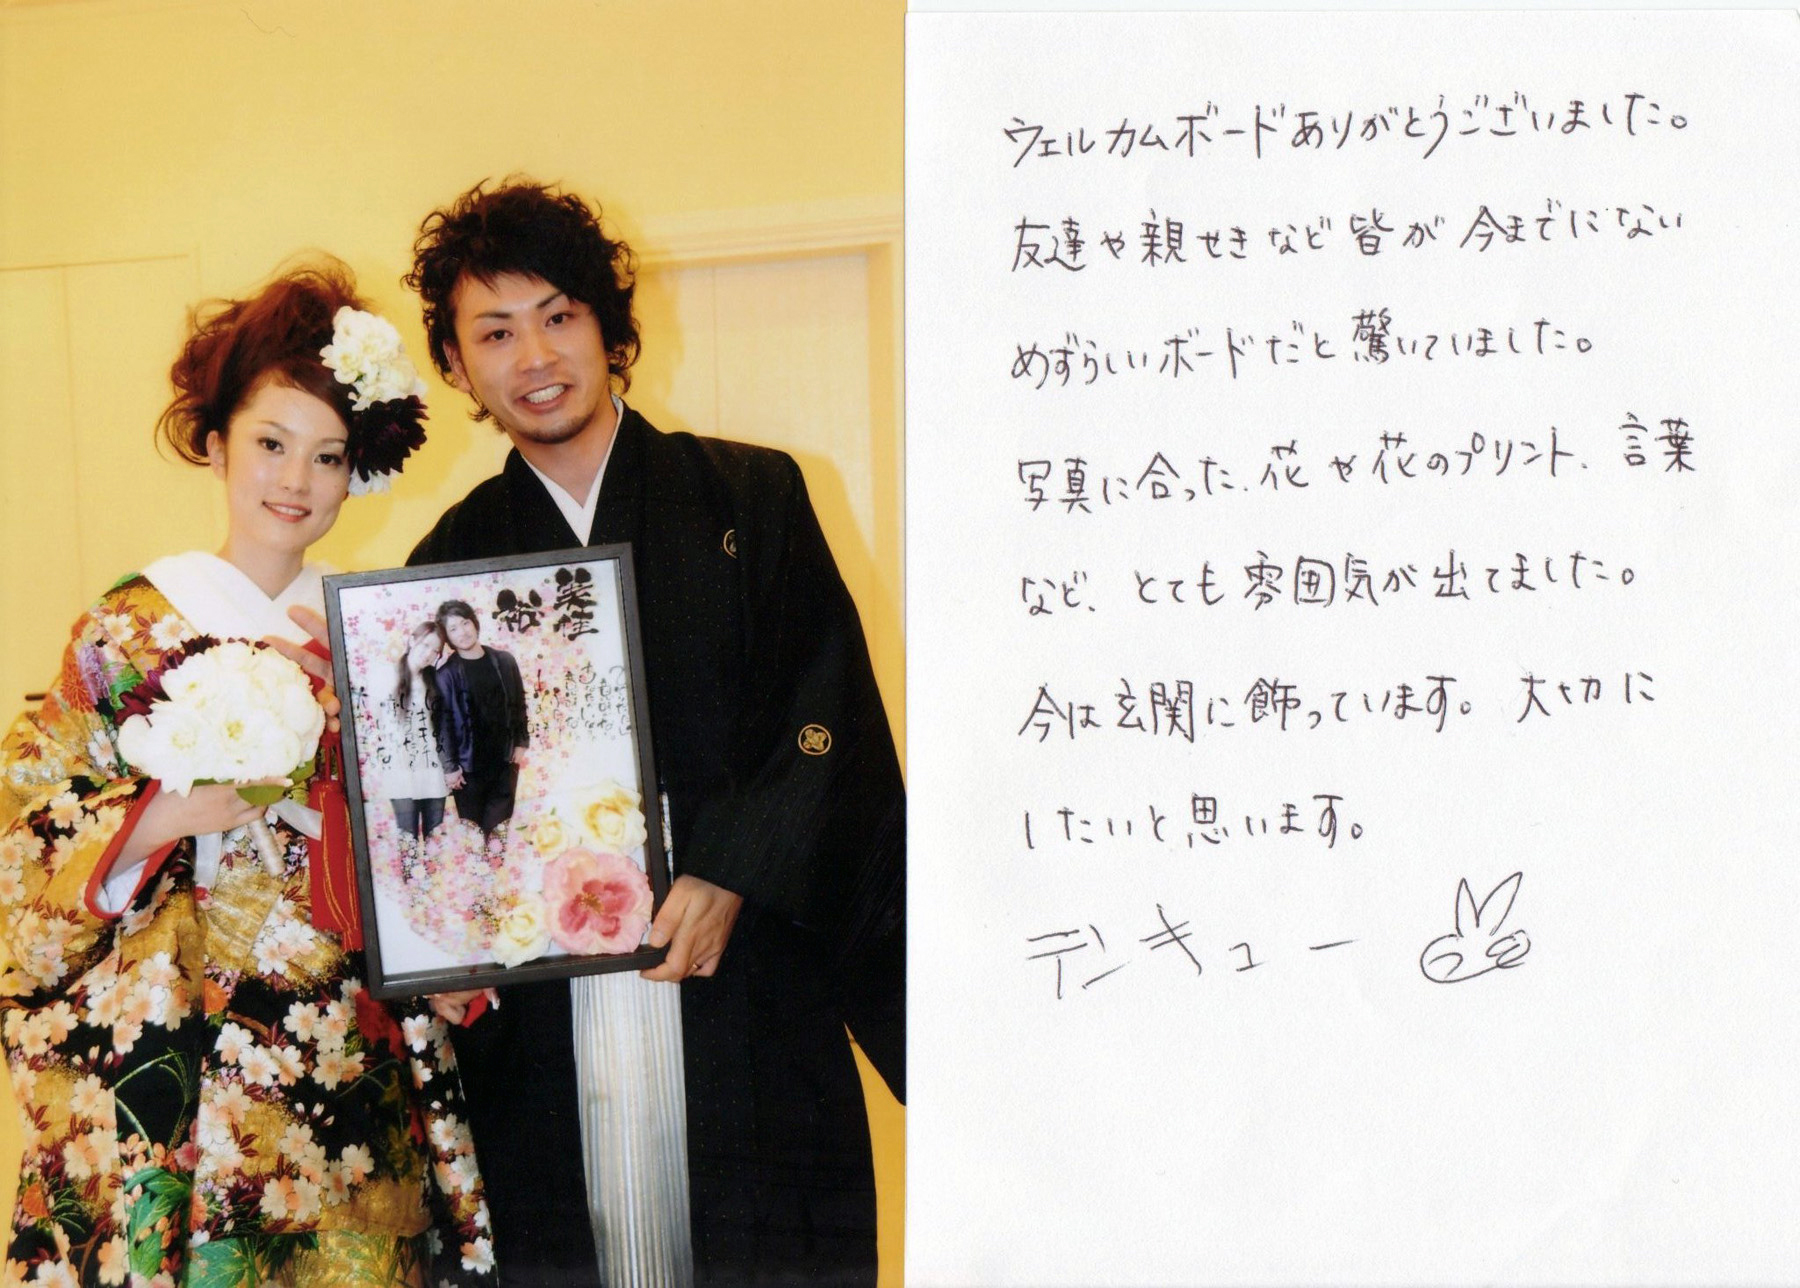 美佳
裕
ウェルカムボードありがとうございました。
友達や親せきなど皆が今までにない
めずらしいボードだと驚いていました。
写真に合った、花や花のプリント、言葉
など、とても雰囲気が出てました。
今は玄関に飾っています。大切に
したいと思います。
テンキュー